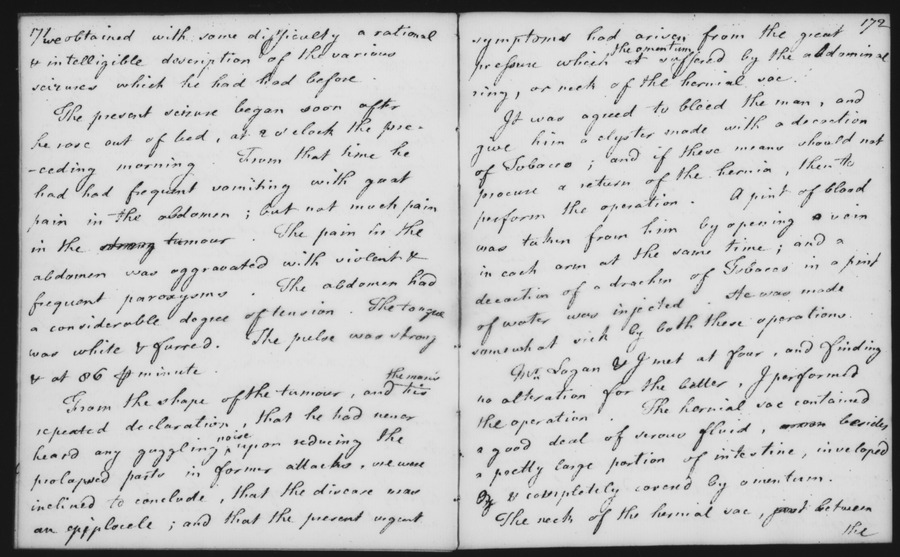 171
we obtained with some difficulty a rational
& intelligible description of the various
seizures which he had had before.
The present seizure began soon after
he rose out of bed, at 2 o'clock the pre-
-ceding morning. From that time he
had had frequent vomiting with great
pain in the abdomen; but not much pain
in the strong tumour. The pain in the
abdomen was aggravated with violent &
frequent paroxysms. The abdomen had
a considerable degree of tension. The tongue
was white & furred. The pulse was strong
& at 86 minute.
the man's
From the shape of the tumour, and his
repeated declaration, that he had never
noise
heard any guggling, upon reducing the
prolapsed parts in former attacks, we were
inclined to conclude, that the disease was
an epiplocele; and that the present urgent
172
symptoms had arisen from the great
the omentum
pressure which it suffered by the abdominal
ring, or neck of the hernial sac.
It was agreed to bleed the man, and
give him a clyster made with a decoction
of Tobacco; and if these means should not
procure a return of the hernia, then to
perform the operation. A pint of blood
was taken from him by opening a vein
in each arm at the same time; and a
decoction of a drachm of Tobacco in a pint
of water was injected. He was made
somewhat sick by both these operations.
Mr. Logan & I met at four, and finding
no alteration for the better, I performed
the operation. The hernial sac contained
a good deal of serous fluid, besides
a pretty large portion of intestine, inveloped
& completely covered by omentum.
The neck of the hernial sac, just between
the